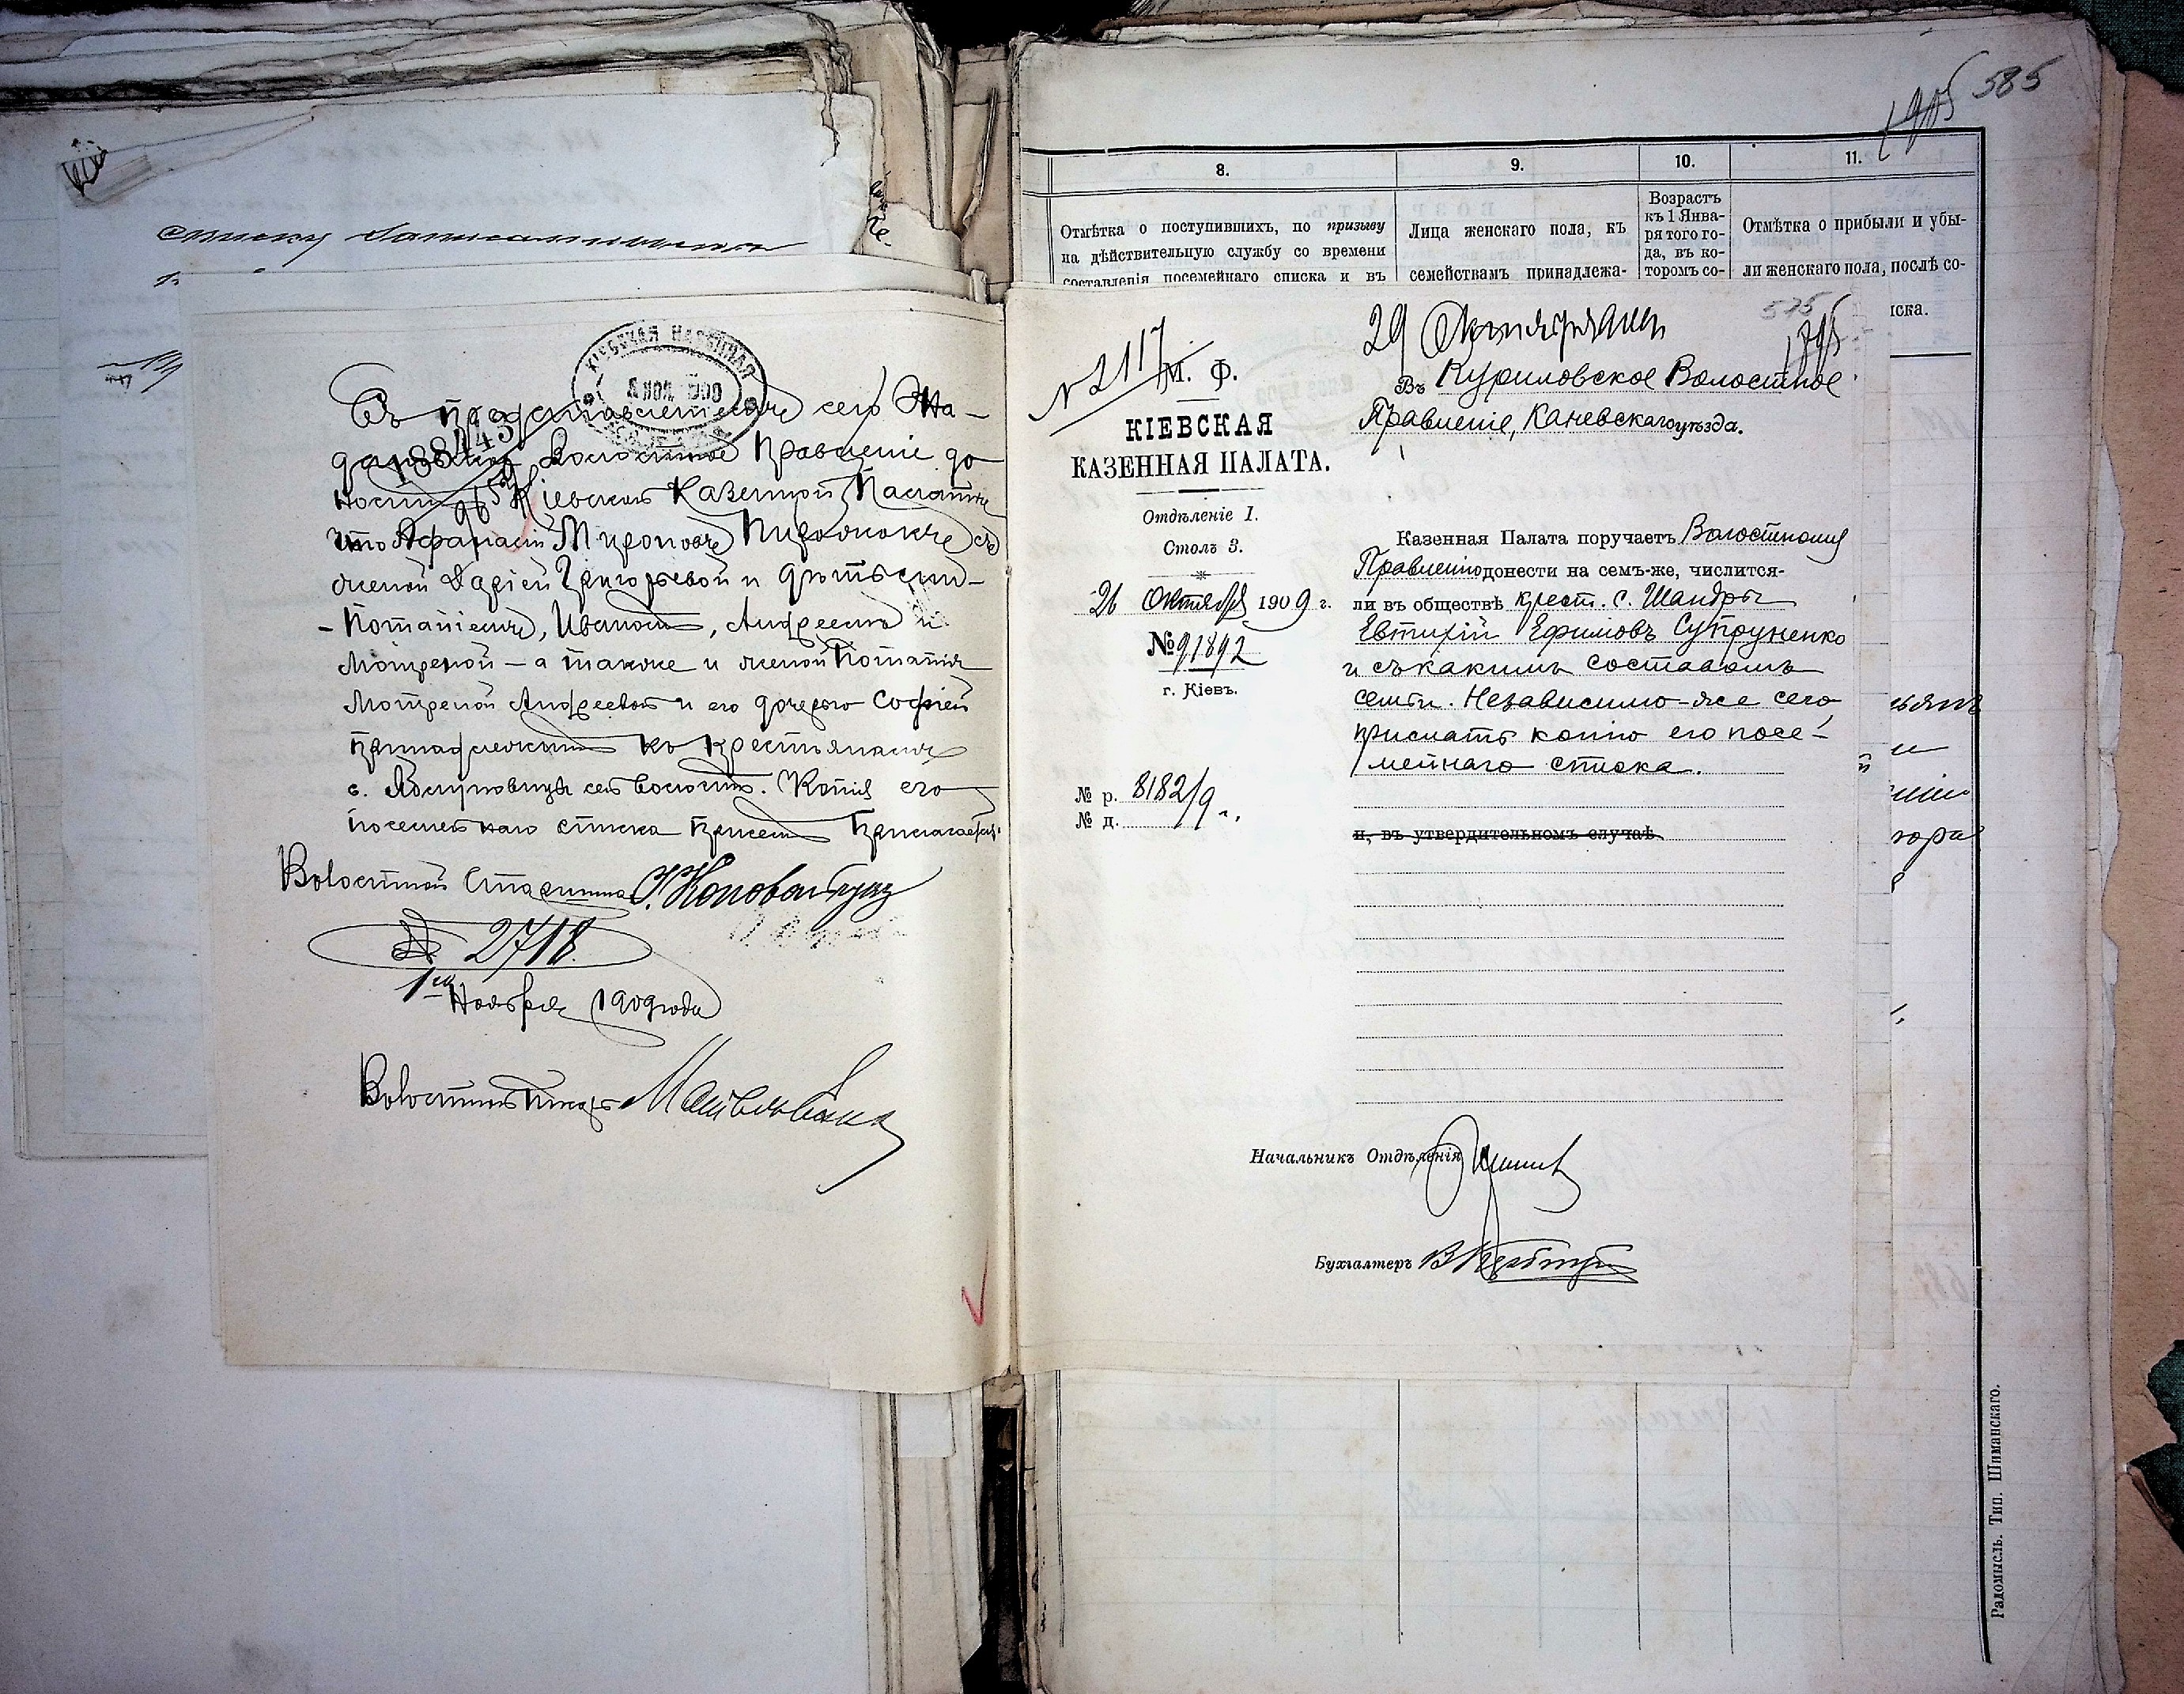 списку
КІЕВСКАЯ КАЗЕННАЯ
Съ представленіемъ сего Жа-
188443
Волостное Правленіе до
носитъ Кіевской Казенной Палатѣ
что Афанасій Мироновъ съ
женой Даріей Григорьевой и дѣтьми
- Потапіемъ, Иваномъ, Андреемъ и
Мотреной - а также и женой Потапія
Мотреной Андреевой и его дочерью Софіей
принадлежитъ къ крестьянамъ
с. сей волости. Копія его
посемейнаго списка при семъ прилагается.
Волостной Старшина
№ 2718
1го Ноября 1909 года
Волостной Писарь
585
8.
9.
10.
11.
Отмѣтка о поступившихъ, по призыву
на дѣйствительную службу со времени
составленія посемейнаго списка и въ
Лица женскаго пола, къ
семействамъ принадлежа-
Возрастъ
къ 1 Янва-
ря того го-
да, въ ко-
торомъ со-
Отмѣтка о прибыли и убы-
ли женскаго пола, послѣ со-
иска.
575
29 Октября
№ 2117
М. Ф.
Въ Куриловское Волостное
Правленіе, Каневскаго уѣзда.
КІЕВСКАЯ
КАЗЕННАЯ ПАЛАТА.
Отдѣленіе 1.
Столъ 3.
26 Октября 1909 г.
№ 91892
г. Кіевъ.
№ р. 8182/9 г.
№ д.
Казенная Палата поручаетъ Волостному
Правленію донести на семъ-же, числится-
ли въ обществѣ крест. с. Шандры
Евтихій Ефимовъ Супруненко
и съ какимъ составомъ
семьи. Независимо-же сего
прислать копію его посе-
мейнаго списка.
и, въ утвердительномъ случаѣ
Начальникъ Отдѣленія
Бухгалтеръ
Радомысль. Тип. Шиманскаго.